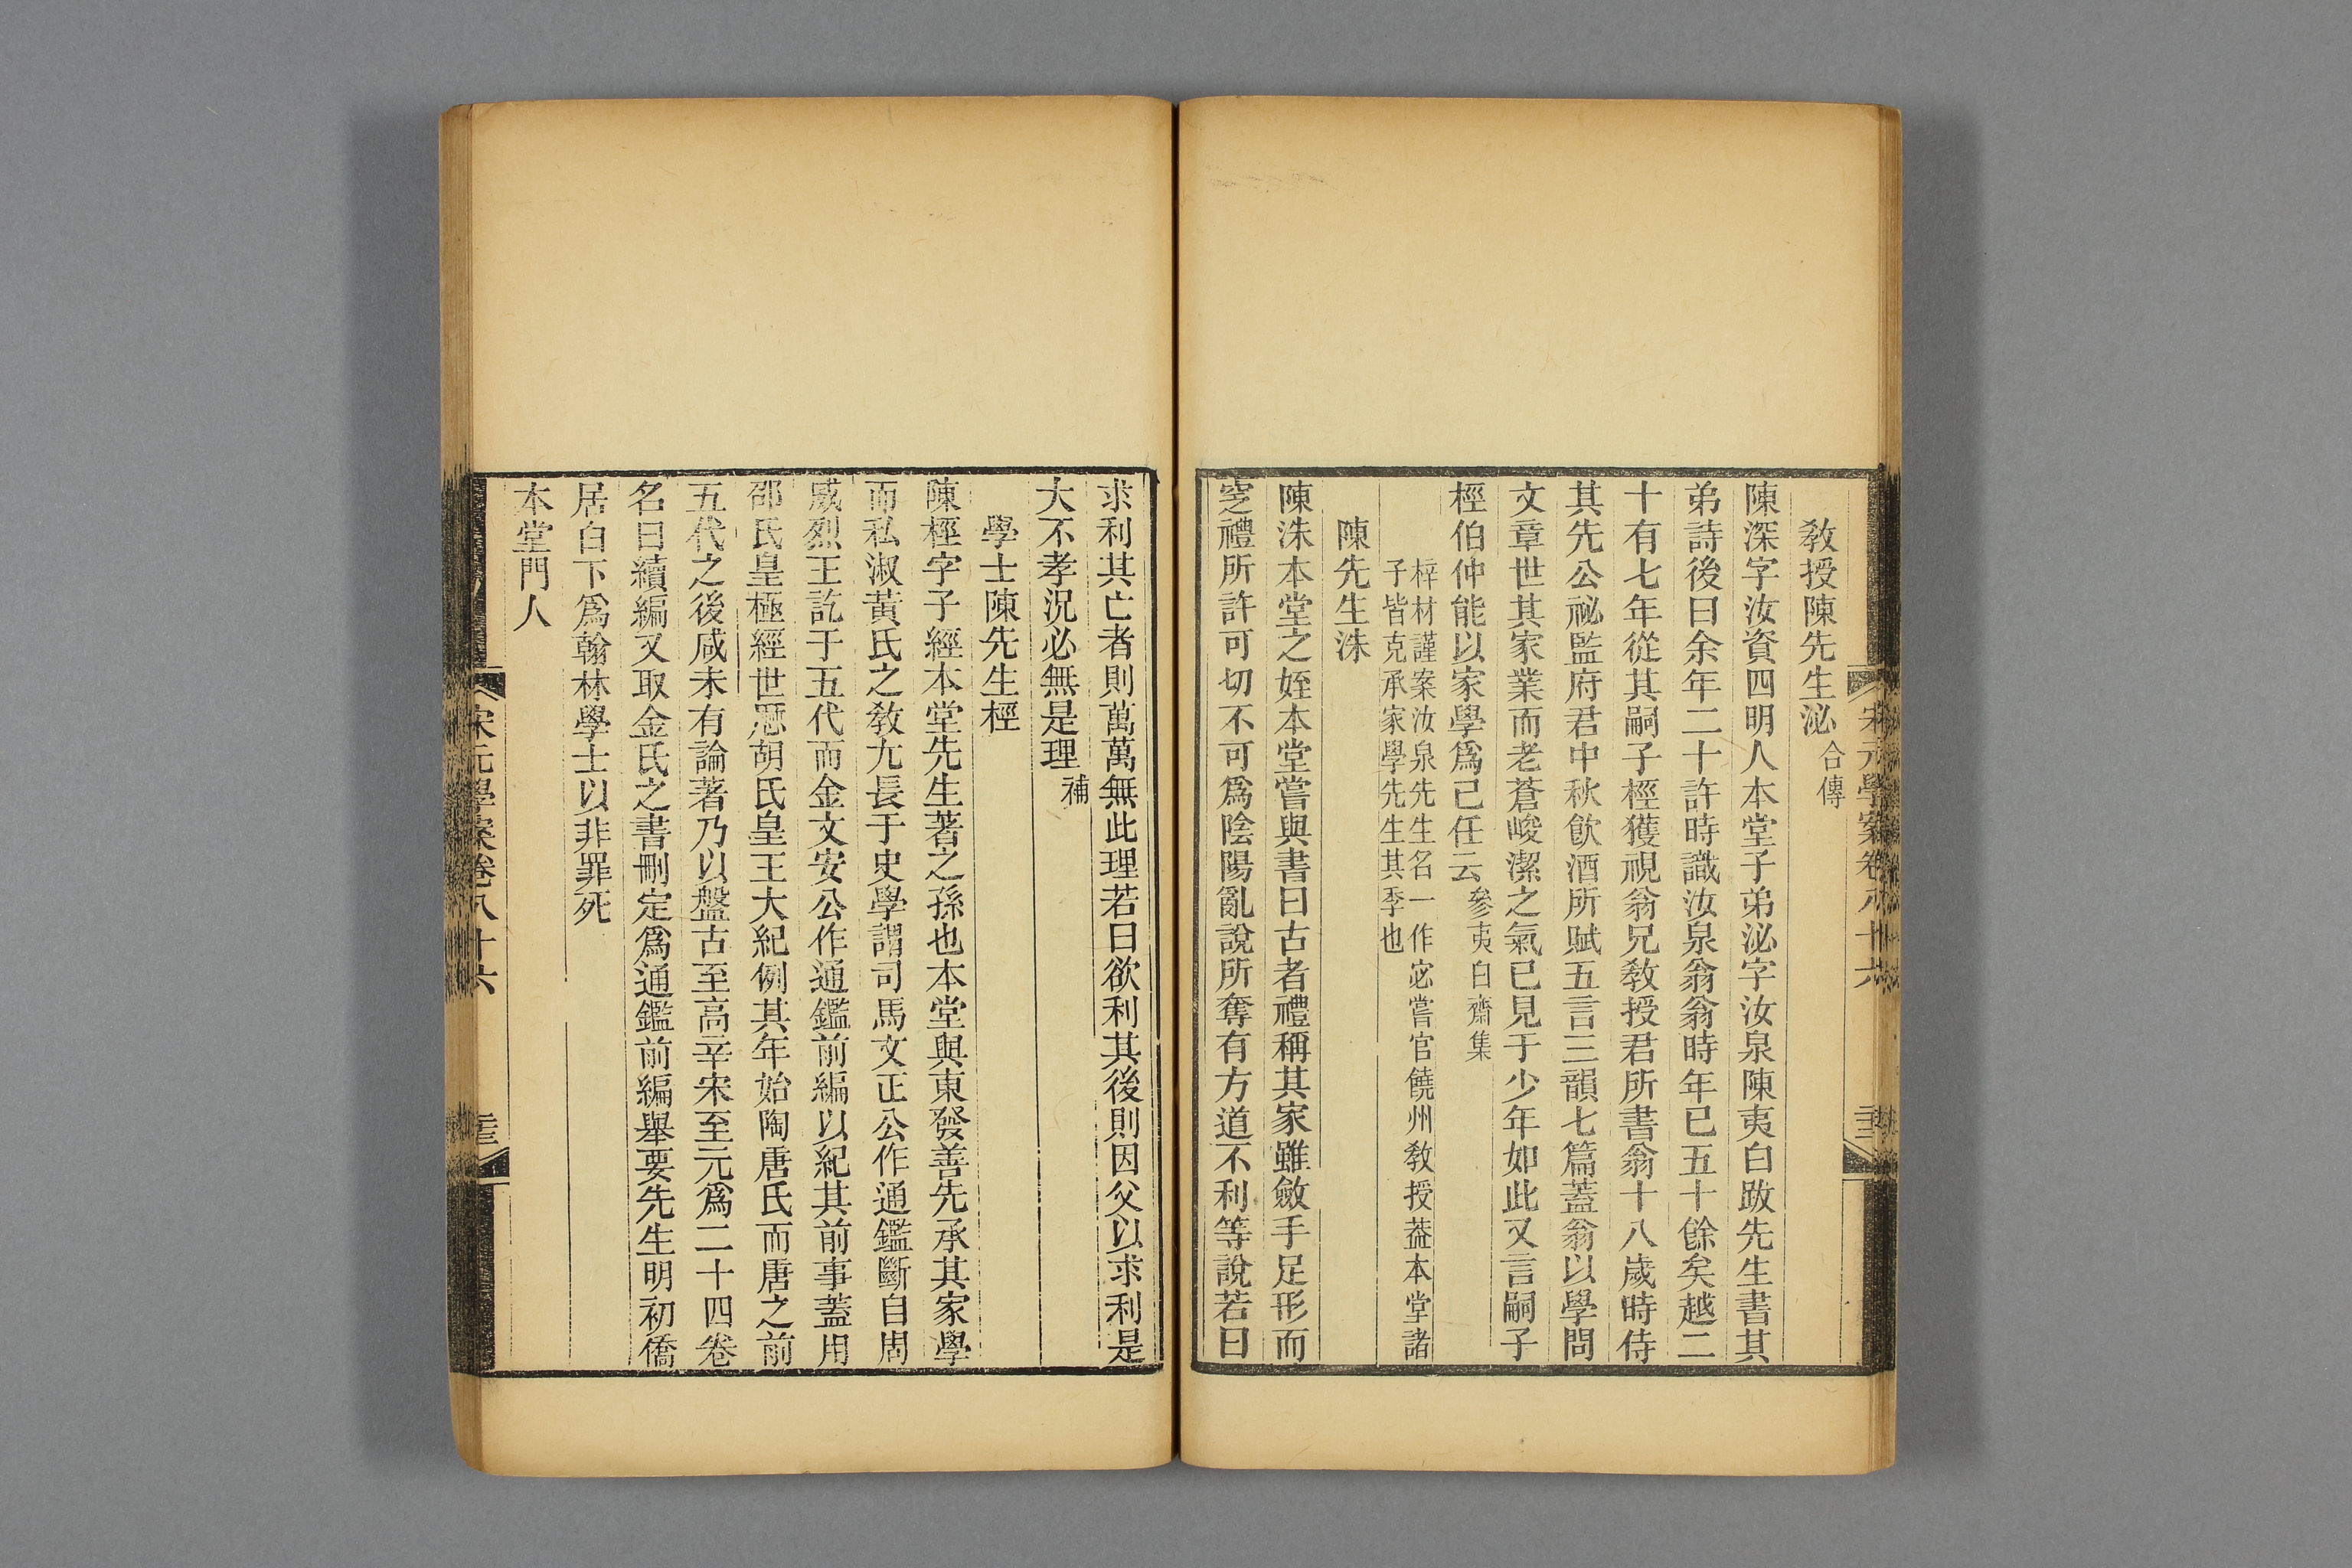 宋元學案卷八十六
教授陳先生泌合傳
陳深字汝資四明人本堂子弟泌字汝泉陳夷白跋先生書其
弟詩後曰余年二十許時識汝泉翁翁時年已五十餘矣越二
十有七年從其嗣子桱獲視翁兄教授君所書翁十八歲時侍
其先公祕監府君中秋飮酒所賦五言三韻七篇蓋翁以學問
文章世其家業而老蒼峻潔之氣已見于少年如此又言嗣子
桱伯仲能以家學爲己任云參夷白齋集
梓材謹案汝泉先生名一作宓嘗官饒州敎授葢本堂諸
子皆克承家學先生其季也
陳先生洙
陳洙本堂之姪本堂嘗與書曰古者禮稱其家雖斂手足形而
窆禮所許可切不可爲陰陽亂說所奪有方道不利等說若曰
求利其亡者則萬萬無此理若曰欲利其後則因父以求利是
大不孝況必無是理補
學士陳先生桱
陳桱字子經本堂先生著之孫也本堂與東發善先承其家學
而私淑黃氏之敎尢長于史學謂司馬文正公作通鑑斷自周
威烈王訖于五代而金文安公作通鑑前編以紀其前事蓋用
邵氏皇極經世厯胡氏皇王大紀例其年始陶唐氏而唐之前
五代之後咸未有論著乃以盤古至高辛宋至元爲二十四卷
名曰續編又取金氏之書刪定爲通鑑前編舉要先生明初僑
居白下爲翰林學士以非罪死
本堂門人
宋元學案卷八十六